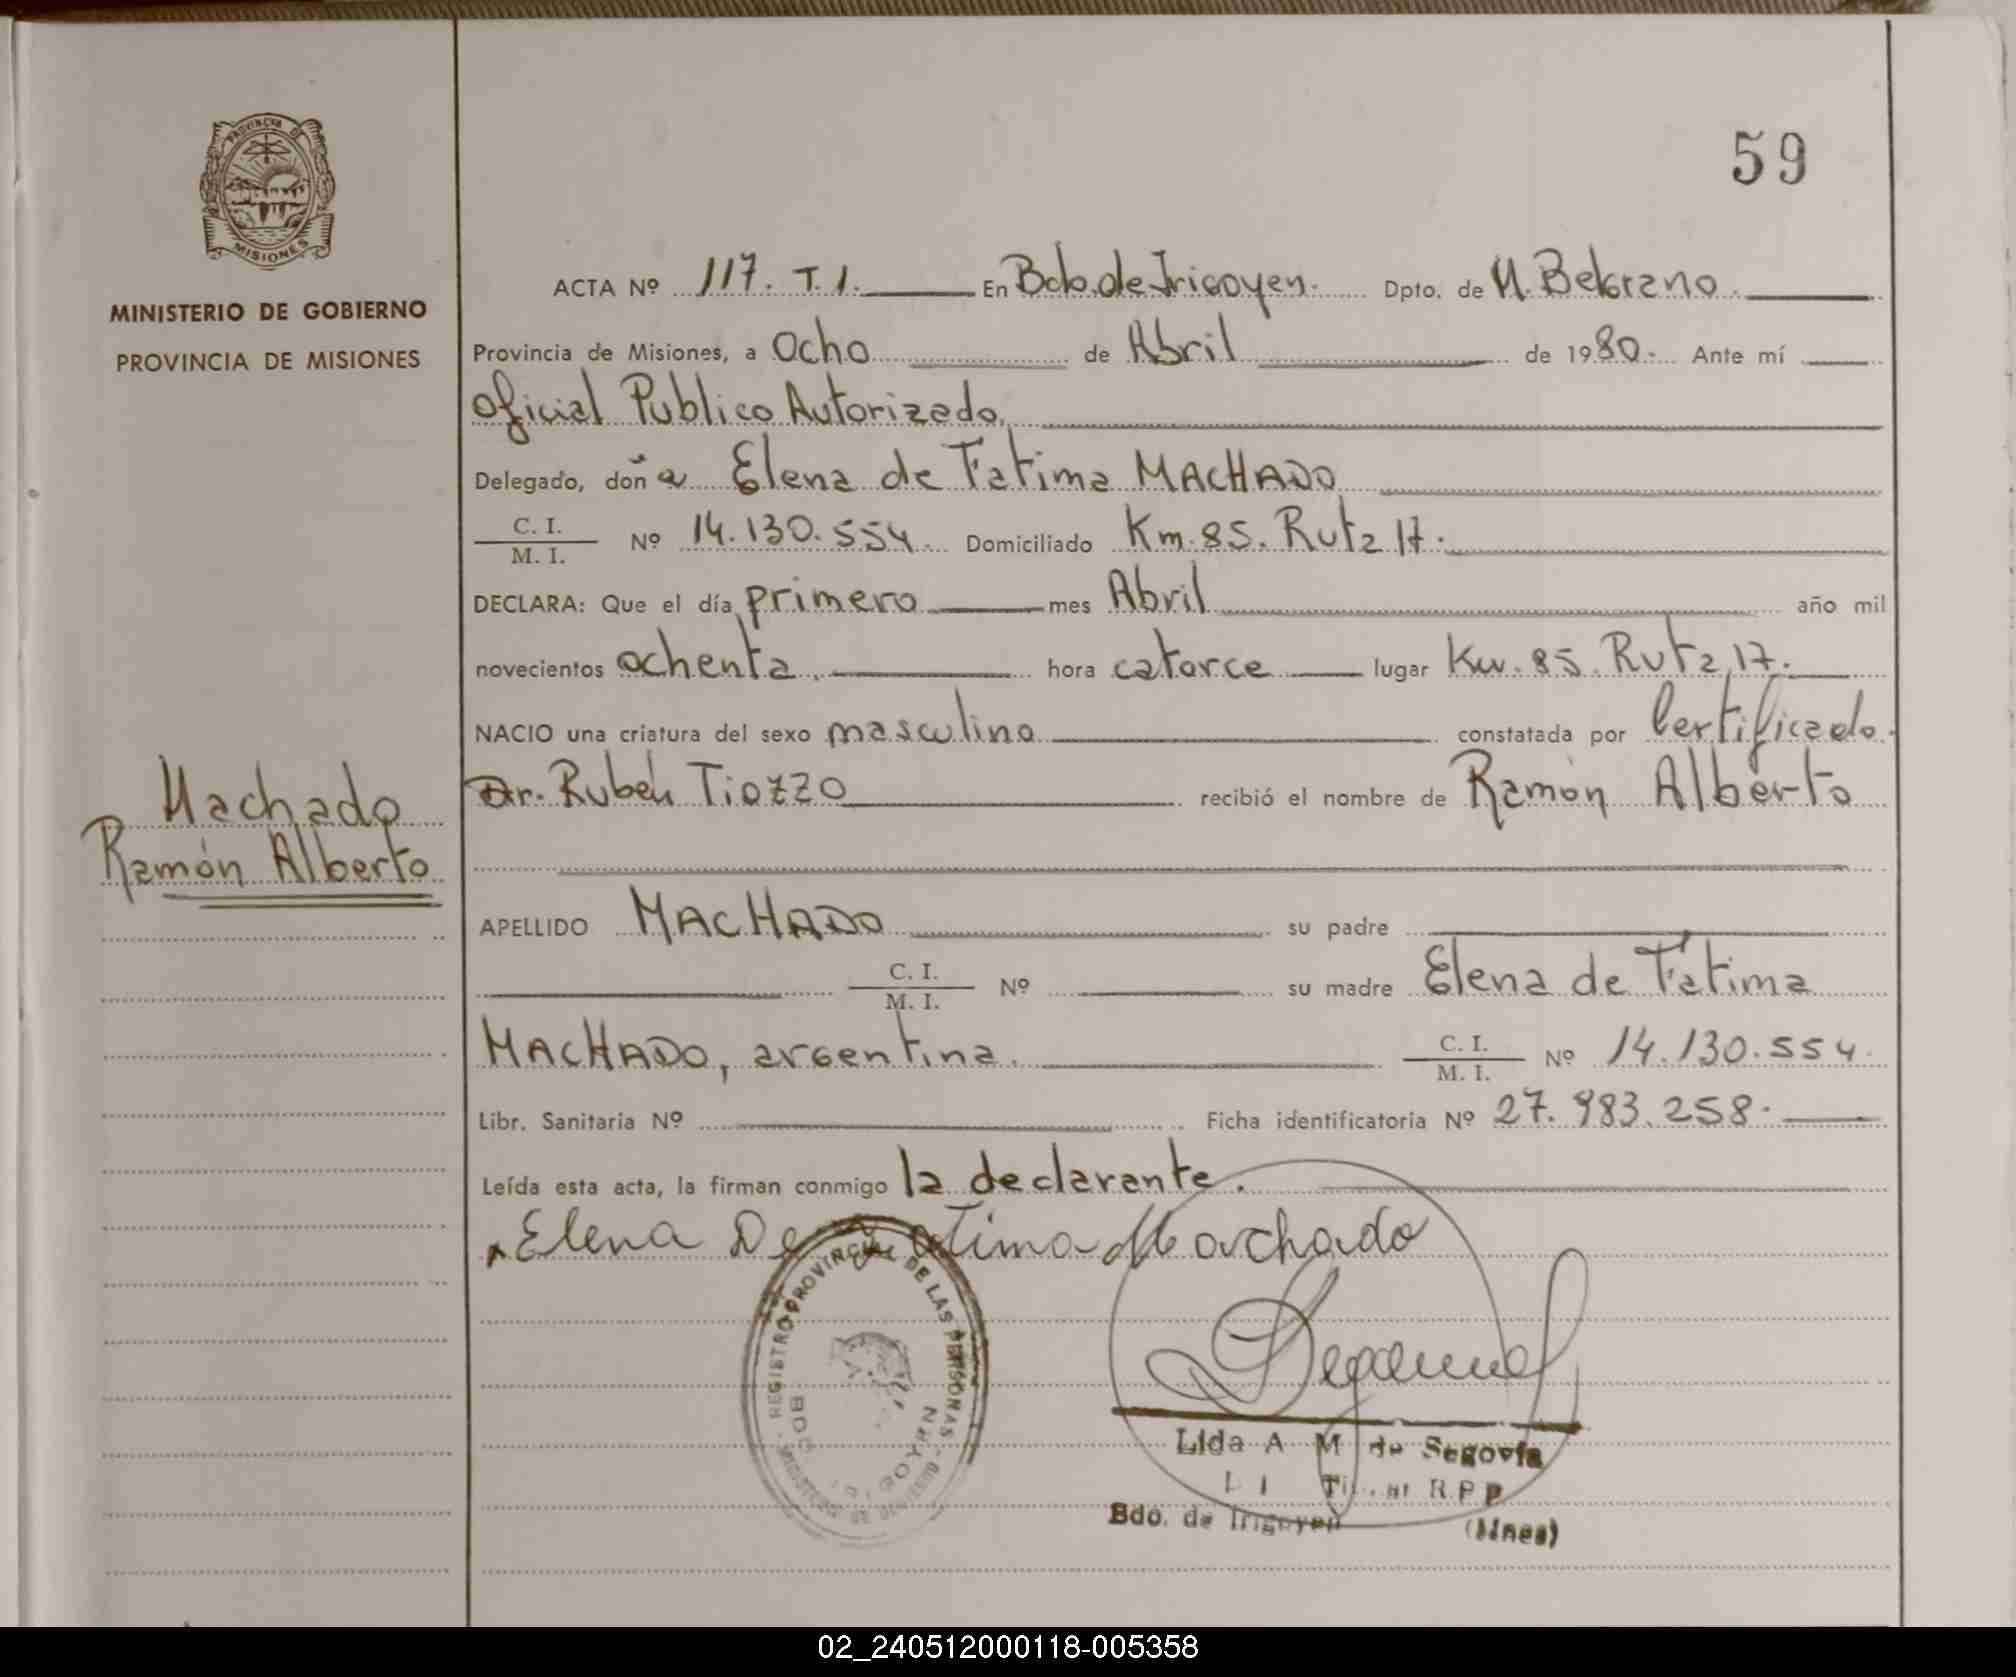 PROVINCIA DE
MISIONES
MINISTERIO DE GOBIERNO
PROVINCIA DE MISIONES
59
ACTA Nº 117. T. 1. En Bdo. de Irigoyen. Dpto. de M. Belgrano.
Provincia de Misiones, a Ocho de Abril de 1980. Ante mí
Oficial Publico Autorizado.
Delegado, doña Elena de Fatima MACHADO
C. I.
M. I. Nº 14.130.554. Domiciliado Km. 85. Ruta 17.
DECLARA: Que el día primero mes Abril año mil
novecientos ochenta. hora catorce lugar Km. 85. Ruta 17.
NACIO una criatura del sexo masculino constatada por Certificado.
Dr. Rubén Tiozzo recibió el nombre de Ramón Alberto
Machado
Ramón Alberto
APELLIDO MACHADO su padre
C. I.
M. I. Nº su madre Elena de Fatima
MACHADO, argentina. C. I.
M. I. Nº 14.130.554.
Libr. Sanitaria Nº Ficha identificatoria Nº 27.983.258.
Leída esta acta, la firman conmigo la declarante.
Elena De Fatima Machado
REGISTRO PROVINCIAL DE LAS PERSONAS
Lida A M de Segovia
R.P.P
Bdo. de Irigoyen (Mnes)
02_240512000118-005358